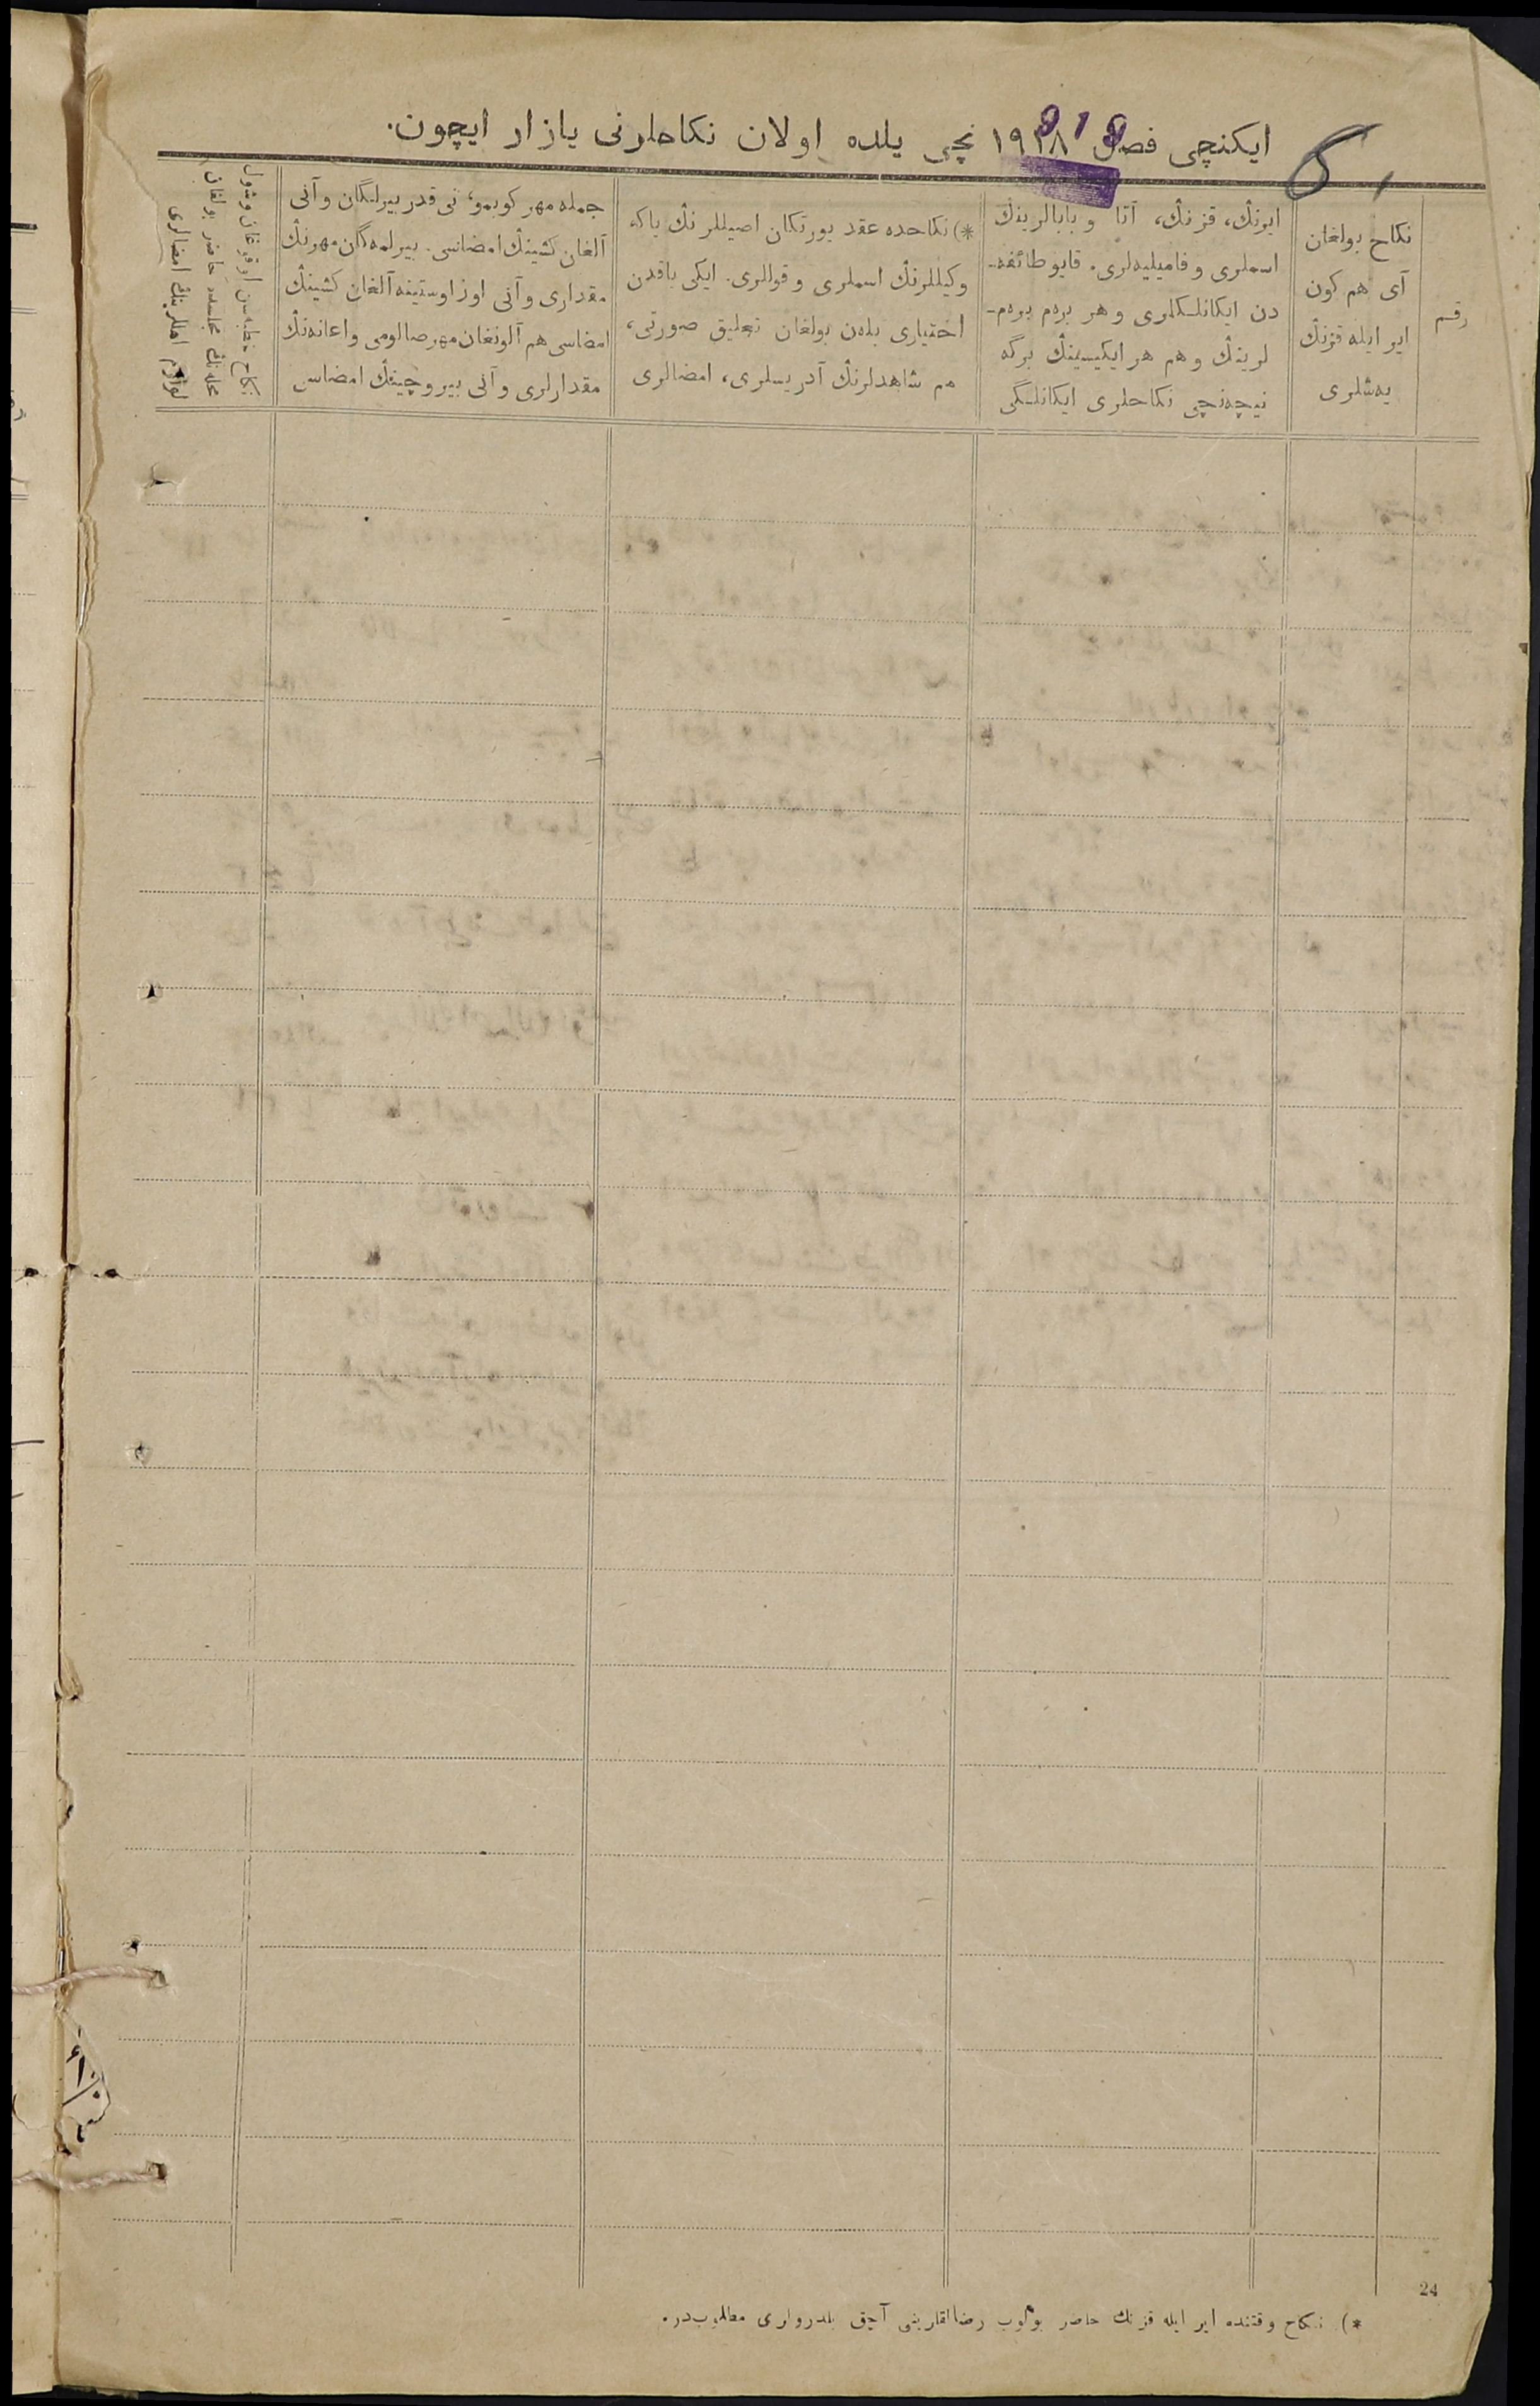 ایکنچی فصل ۱۹۱۸ نچی یلده اولان نکاحلرنی یازار ایچون.
رقم
نکاح بولغان
آی هم کون
ایر ایله قزنڭ
یه‌شلری
ایرنڭ، قزنڭ، آتا و بابالرینڭ
اسملری و فامیلیه‌لری. قایو طائفه-
دن ایکانلکلری و هر برهم برهم-
لرینڭ و هم هر ایکیسینڭ برگه
نیچه‌نچی نکاحلری ایکانلگی
*) نکاحده عقد یورتکان اصیللرنڭ یاکه
وکیللرنڭ اسملری و قوللری. ایکی یاقدن
اختیاری بله‌ن بولغان تعلیق صورتی،
هم شاهدلرنڭ آدریسلری، امضالری
جمله مهر کوبمو، نی قدر بیرلگان و آنی
آلغان کشینڭ امضاسی. بیرلمه‌گان مهرنڭ
مقداری و آنی اوز اوستینه آلغان کشینڭ
امضاسی هم آلونغان مهر صالومی و اعانه‌نڭ
مقدارلری و آنی بیروچینڭ امضاسی
نکاح خطبه‌سن اوقوغان و شول
محله‌نڭ مجلسده حاضر بولغان
امضالری
24
*) نکاح وقتنده ایر ایله قزنڭ حاضر بولوب رضالقلرینی آچق بلدرولری مطلوب‌در.